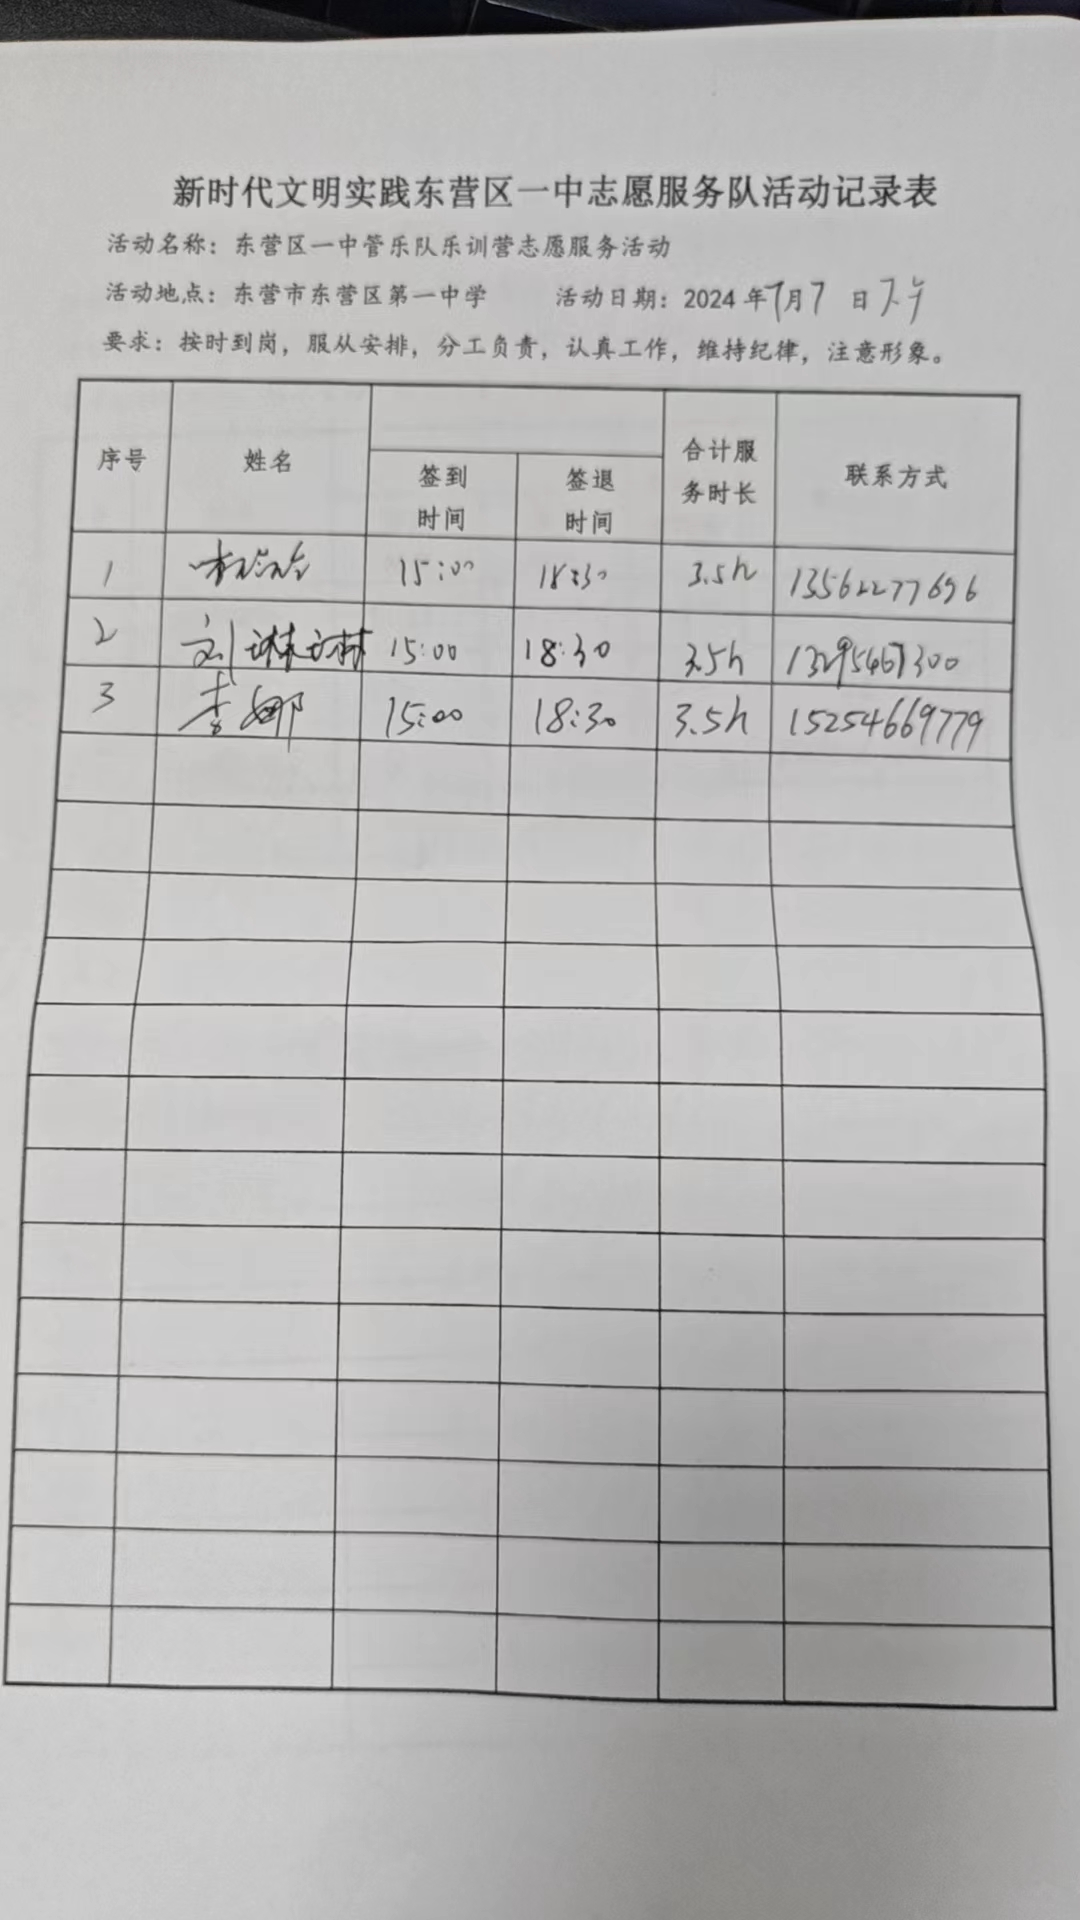 新时代文明实践东营区一中志愿服务队活动记录表
活动名称：东营区一中管乐队乐训营志愿服务活动
活动地点：东营市东营区第一中学 活动日期：2024 年7月7 日 下午
要求：按时到岗，服从安排，分工负责，认真工作，维持纪律，注意形象。
序号 姓名 签到时间 签退时间 合计服务时长 联系方式
1 15:00 18:30 3.5h 13562277696
2 刘琳琳 15:00 18:30 3.5h 13295467300
3 李娜 15:00 18:30 3.5h 15254669779